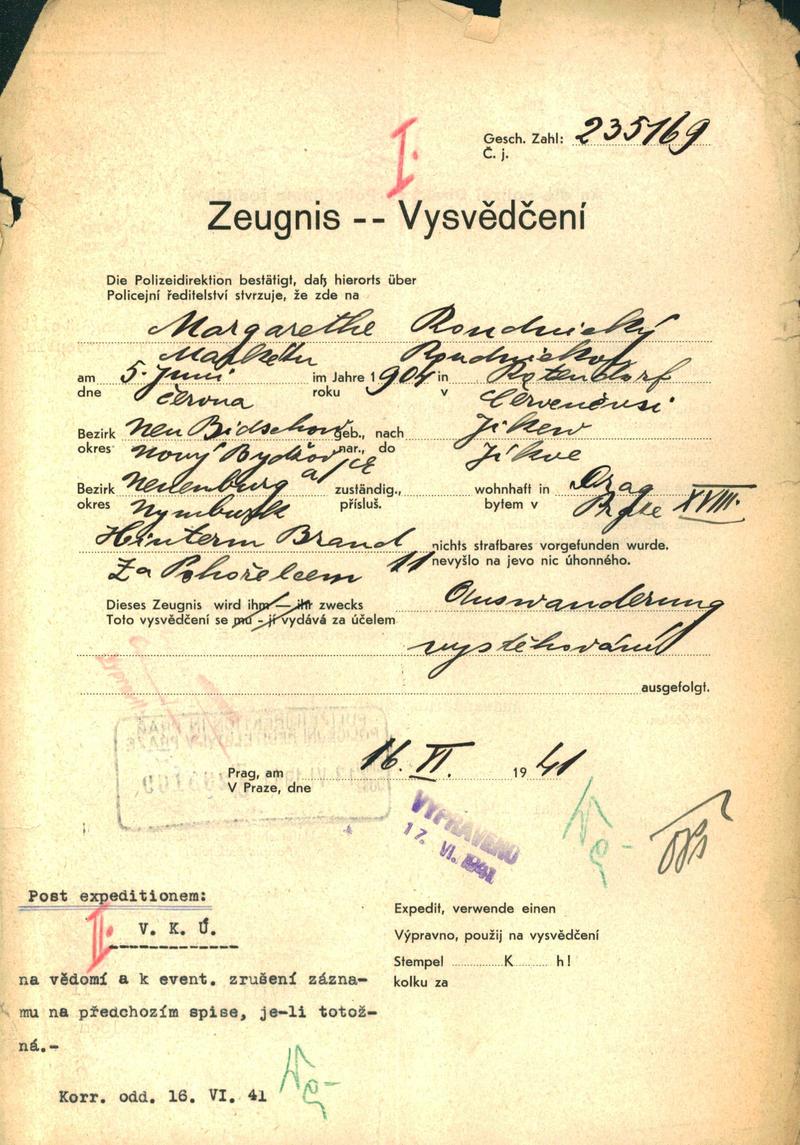 I.
Gesch. Zahl: 235169
Č. j.
Zeugnis -- Vysvědčení
Die Polizeidirektion bestätigt, daß hierorts über
Policejní ředitelství stvrzuje, že zde na
Margarethe Roudnický
Markétu Roudnickou
am 5. Juni im Jahre 1904 in Rotendorf
dne června roku v Červeněvsi
Bezirk Neu Bidschow geb., nach Jikew
okres Nový Bydžov nar., do Jíkve
Bezirk Neuenburg a/E zuständig., wohnhaft in Prag
okres Nymburk přísluš. bytem v Praze XVIII.
Hinterm Brand nichts strafbares vorgefunden wurde.
Za Pohořelcem 11 nevyšlo na jevo nic úhonného.
Dieses Zeugnis wird ihm — ihr zwecks Auswanderung
Toto vysvědčení se mu - jí vydává za účelem
vystěhování
ausgefolgt.
Prag, am 16. VI. 1941
V Praze, dne
VYPRAVENO
17. VI. 1941
Post expeditionem:
II. V. K. Ú.
na vědomí a k event. zrušení zázna-
mu na předchozím spise, je-li totož-
ná.-
Korr. odd. 16. VI. 41
Expedit, verwende einen
Výpravno, použij na vysvědčení
Stempel K h!
kolku za